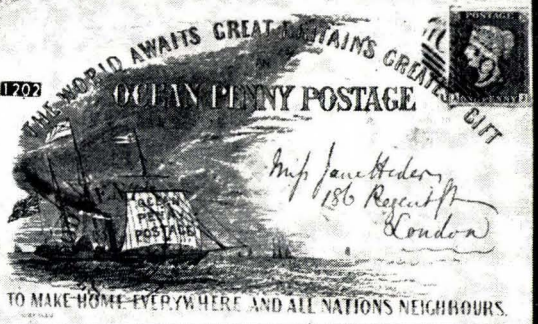 THE WORLD AWAITS GREAT BRITAIN'S GREATEST GIFT
POSTAGE
ONE PENNY
1202
OCEAN PENNY POSTAGE
OCEAN
PENNY
POSTAGE
Miss Jane
186 Regent St
London
TO MAKE HOME EVERYWHERE AND ALL NATIONS NEIGHBOURS.